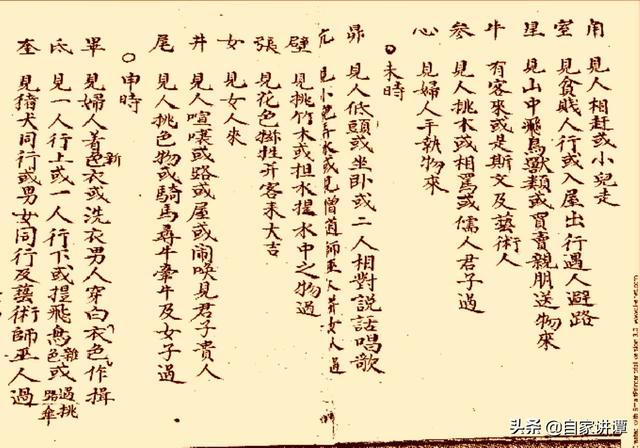 角 見人相赶或小兒走
室 見貧賤人行或入屋出行遇人避路
星 見山中飛鳥獸類或買賣親朋送物來
牛 有客來或是斯文及藝術人
參 見人挑木或相罵或儒人君子過
心 見婦人手執物來
○未時
昴 見人低頭或坐卧或二人相對説話唱歌
亢 見小兒弄水或見僧道師巫人并女人過
壁 見挑竹木或担水提水中之物過
張 見花色掛牲并客來大吉
女 見女人來
井 見人喧嚷或路或屋或閙喚見君子貴人
尾 見人挑色物或騎馬尋牛牽牛及女子過
○申時
畢 見婦人著新色衣或洗衣男人穿白衣色作揖
氐 見一人行上或一人行下或提飛鳥雜色或過挑路傘
奎 見猪犬同行或男女同行及藝術師巫人過
头条 @自家讲谭